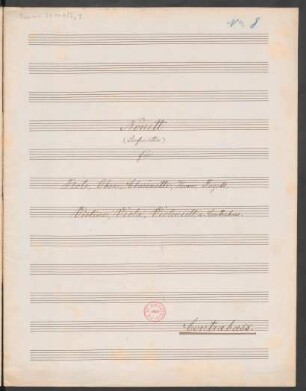 No 8
Nonett
(Sinfonietta)
für
Flöte, Oboe, Clarinette, Horn, Fagott
Violine, Viola, Violoncell u. Contrabass.
Contrabass.